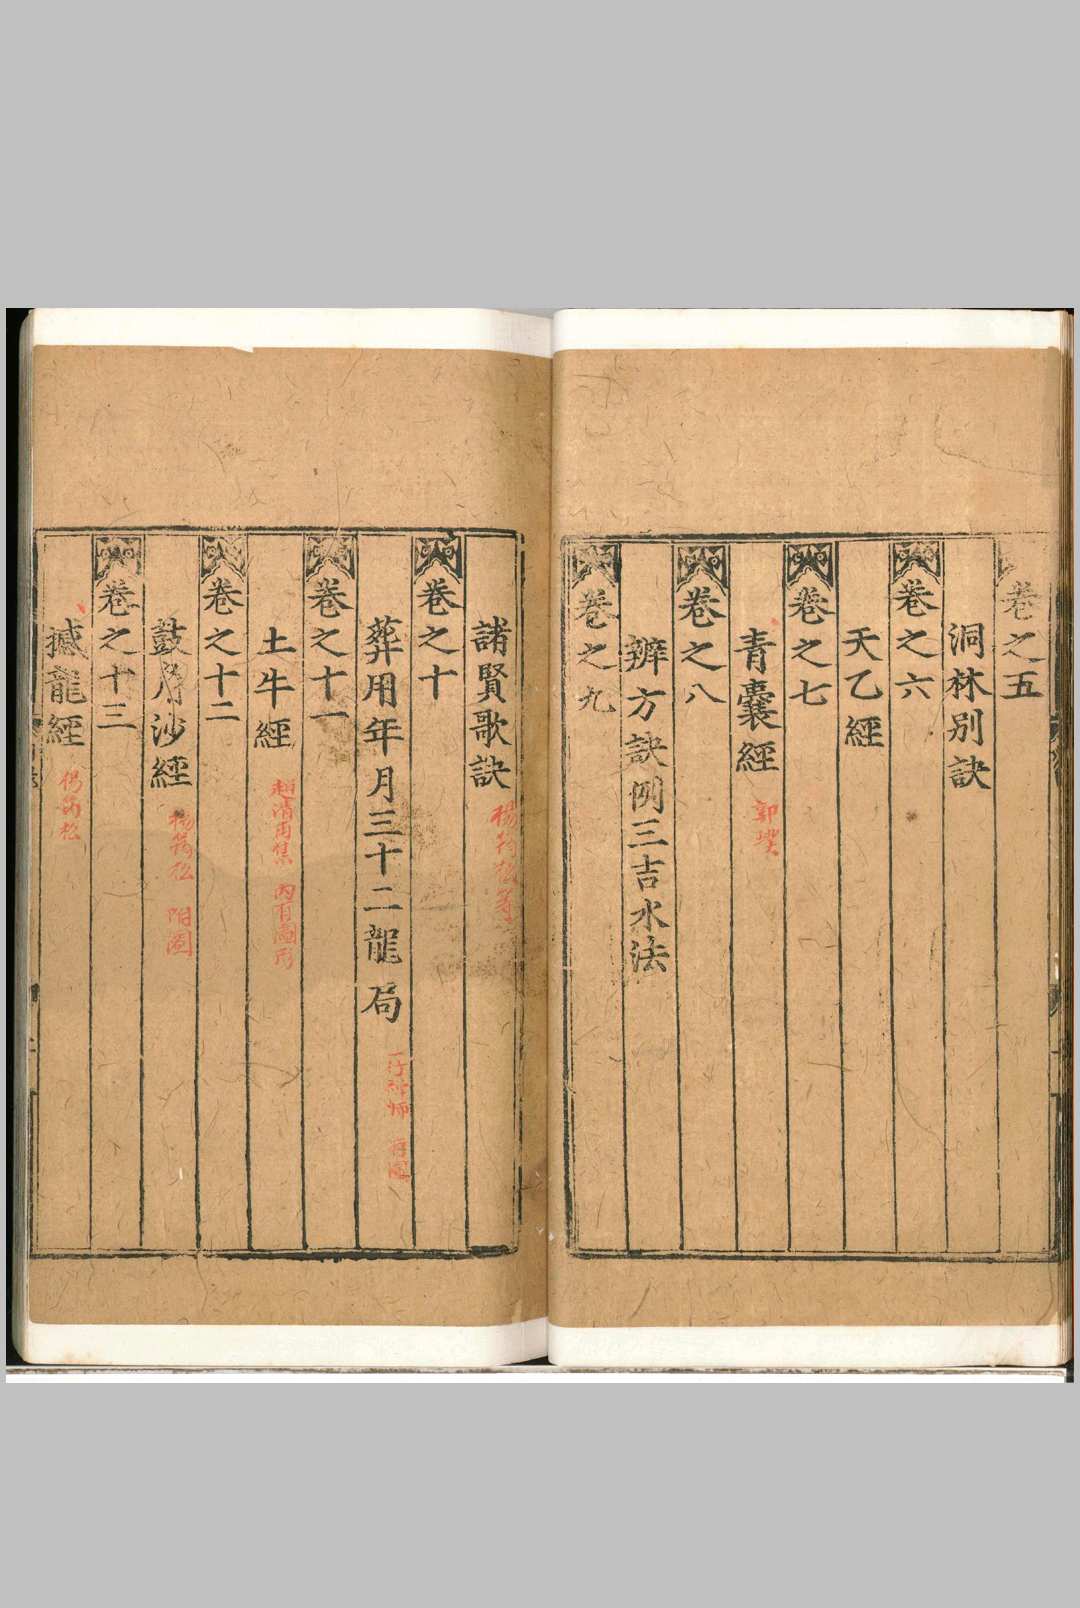 卷之五
洞林別訣
卷之六
天乙經
卷之七
青囊經 郭璞
卷之八
辨方訣例三吉水法
卷之九
諸賢歌訣 楊筠松等
卷之十
葬用年月三十二龍局 一行禪師 有圖
卷之十一
土牛經 內有圖形
卷之十二
鼓角沙經 楊筠松 附圖
卷之十三
撼龍經 楊筠松